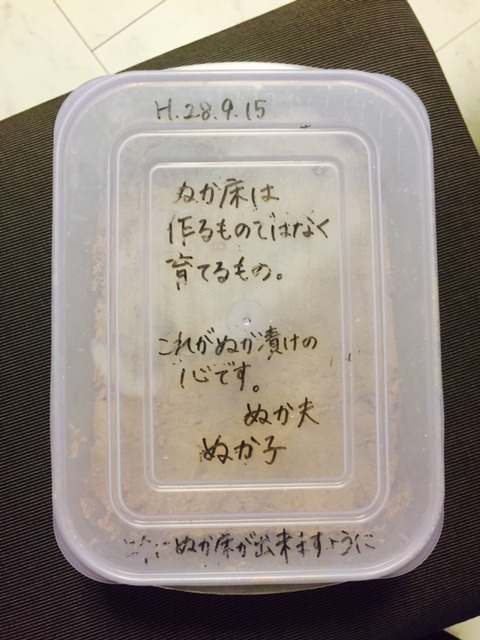 H.28.9.15
ぬか床は
作るものではなく
育てるもの。
これがぬか漬けの
心です。
ぬか夫
ぬか子
ぬか床が出来ますように